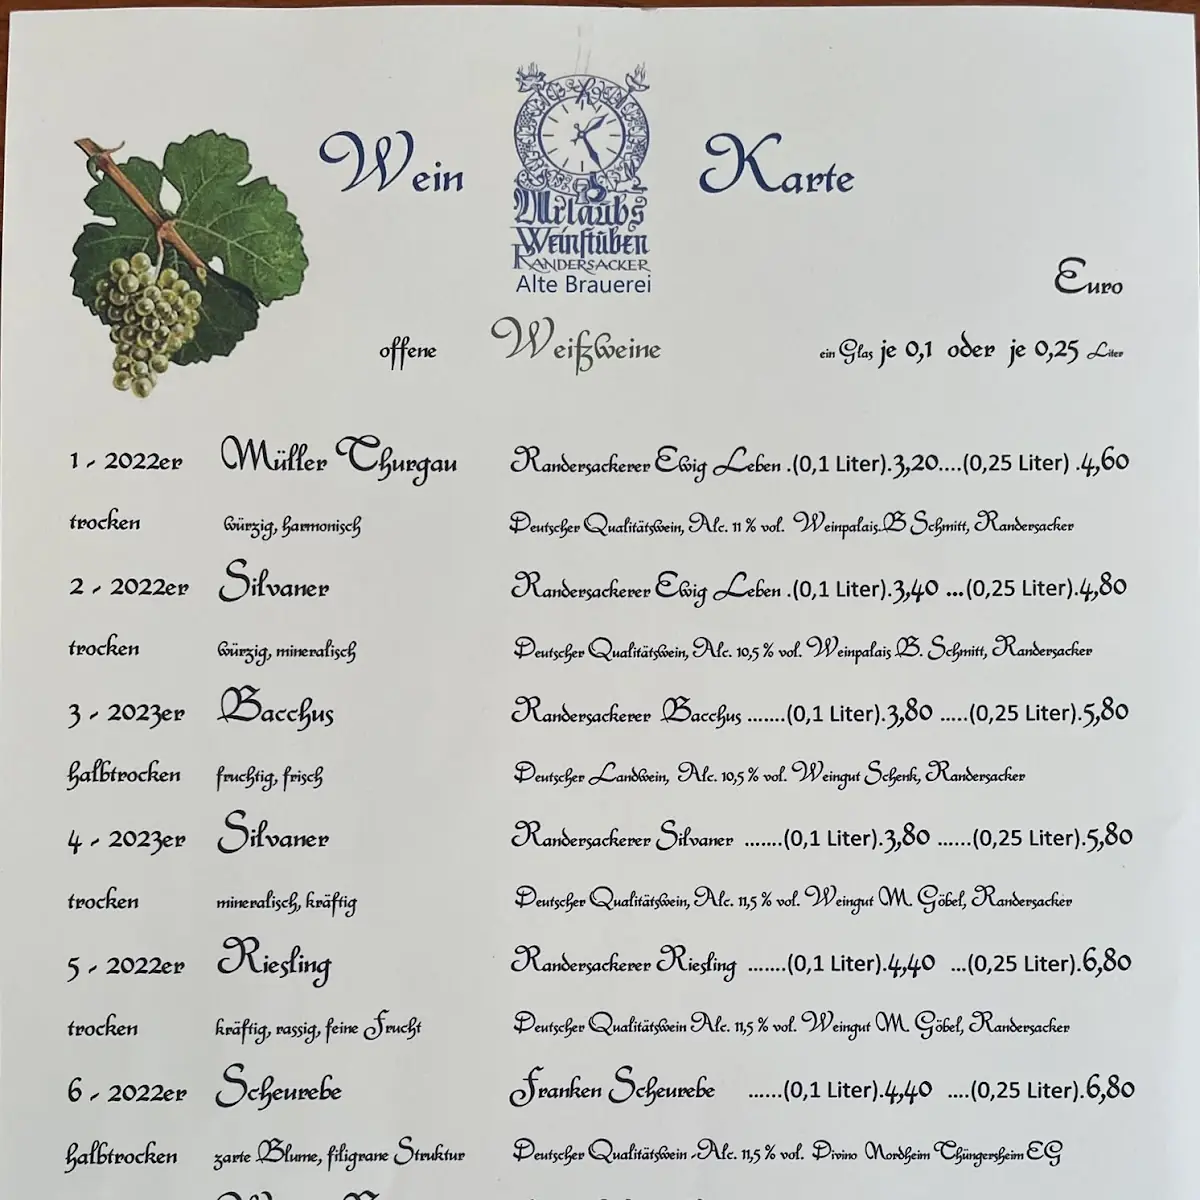 Wein Karte
Urlaubs
Weinstuben
RANDERSACKER
Alte Brauerei
Euro
offene Weißweine ein Glas je 0,1 oder je 0,25 Liter
1 - 2022er Müller Thurgau Randersackerer Ewig Leben .(0,1 Liter).3,20....(0,25 Liter) .4,60
trocken würzig, harmonisch Deutscher Qualitätswein, Alc. 11 % vol. Weinpalais..B Schmitt, Randersacker
2 - 2022er Silvaner Randersackerer Ewig Leben .(0,1 Liter).3,40 ...(0,25 Liter).4,80
trocken würzig, mineralisch Deutscher Qualitätswein, Alc. 10,5 % vol. Weinpalais B. Schmitt, Randersacker
3 - 2023er Bacchus Randersackerer Bacchus .......(0,1 Liter).3,80 .....(0,25 Liter).5,80
halbtrocken fruchtig, frisch Deutscher Landwein, Alc. 10,5 % vol. Weingut Schenk, Randersacker
4 - 2023er Silvaner Randersackerer Silvaner .......(0,1 Liter).3,80 ......(0,25 Liter).5,80
trocken mineralisch, kräftig Deutscher Qualitätswein, Alc. 11,5 % vol. Weingut M. Göbel, Randersacker
5 - 2022er Riesling Randersackerer Riesling .......(0,1 Liter).4,40 ...(0,25 Liter).6,80
trocken kräftig, rassig, feine Frucht Deutscher Qualitätswein Alc. 11,5 % vol. Weingut M. Göbel, Randersacker
6 - 2022er Scheurebe Franken Scheurebe ......(0,1 Liter).4,40 ....(0,25 Liter).6,80
halbtrocken zarte Blume, filigrane Struktur Deutscher Qualitätswein -Alc. 11,5 % vol. Divino Nordheim Thüngersheim EG